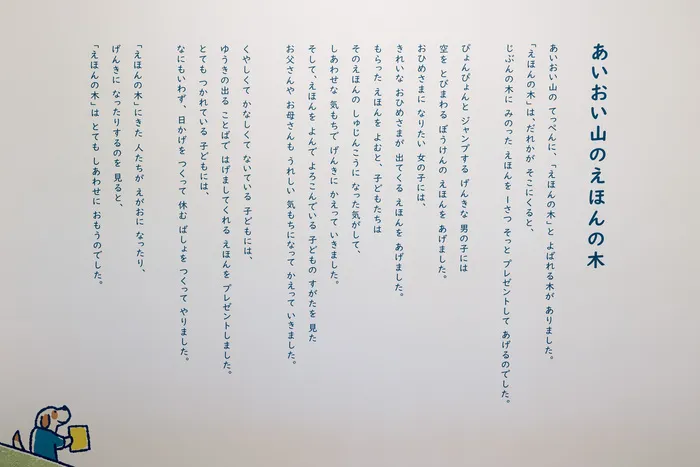 あいおい山のえほんの木
あいおい山の てっぺんに、「えほんの木」と よばれる木が ありました。
「えほんの木」は、だれかが そこにくると、
じぶんの木に みのった えほんを 一さつ そっと プレゼントして あげるのでした。
ぴょんぴょんと ジャンプする げんきな 男の子には
空を とびまわる ぼうけんの えほんを あげました。
おひめさまに なりたい 女の子には、
きれいな おひめさまが 出てくる えほんを あげました。
もらった えほんを よむと、子どもたちは
そのえほんの しゅじんこうに なった気がして、
しあわせな 気もちで げんきに かえって いきました。
そして、えほんを よんで よろこんでいる 子どもの すがたを 見た
お父さんや お母さんも うれしい 気もちになって かえって いきました。
くやしくて かなしくて ないている 子どもには、
ゆうきの出る ことばで はげましてくれる えほんを プレゼントしました。
とても つかれている 子どもには、
なにもいわず、日かげを つくって 休む ばしょを つくって やりました。
「えほんの木」にきた 人たちが えがおに なったり、
げんきに なったりするのを 見ると、
「えほんの木」は とても しあわせに おもうのでした。